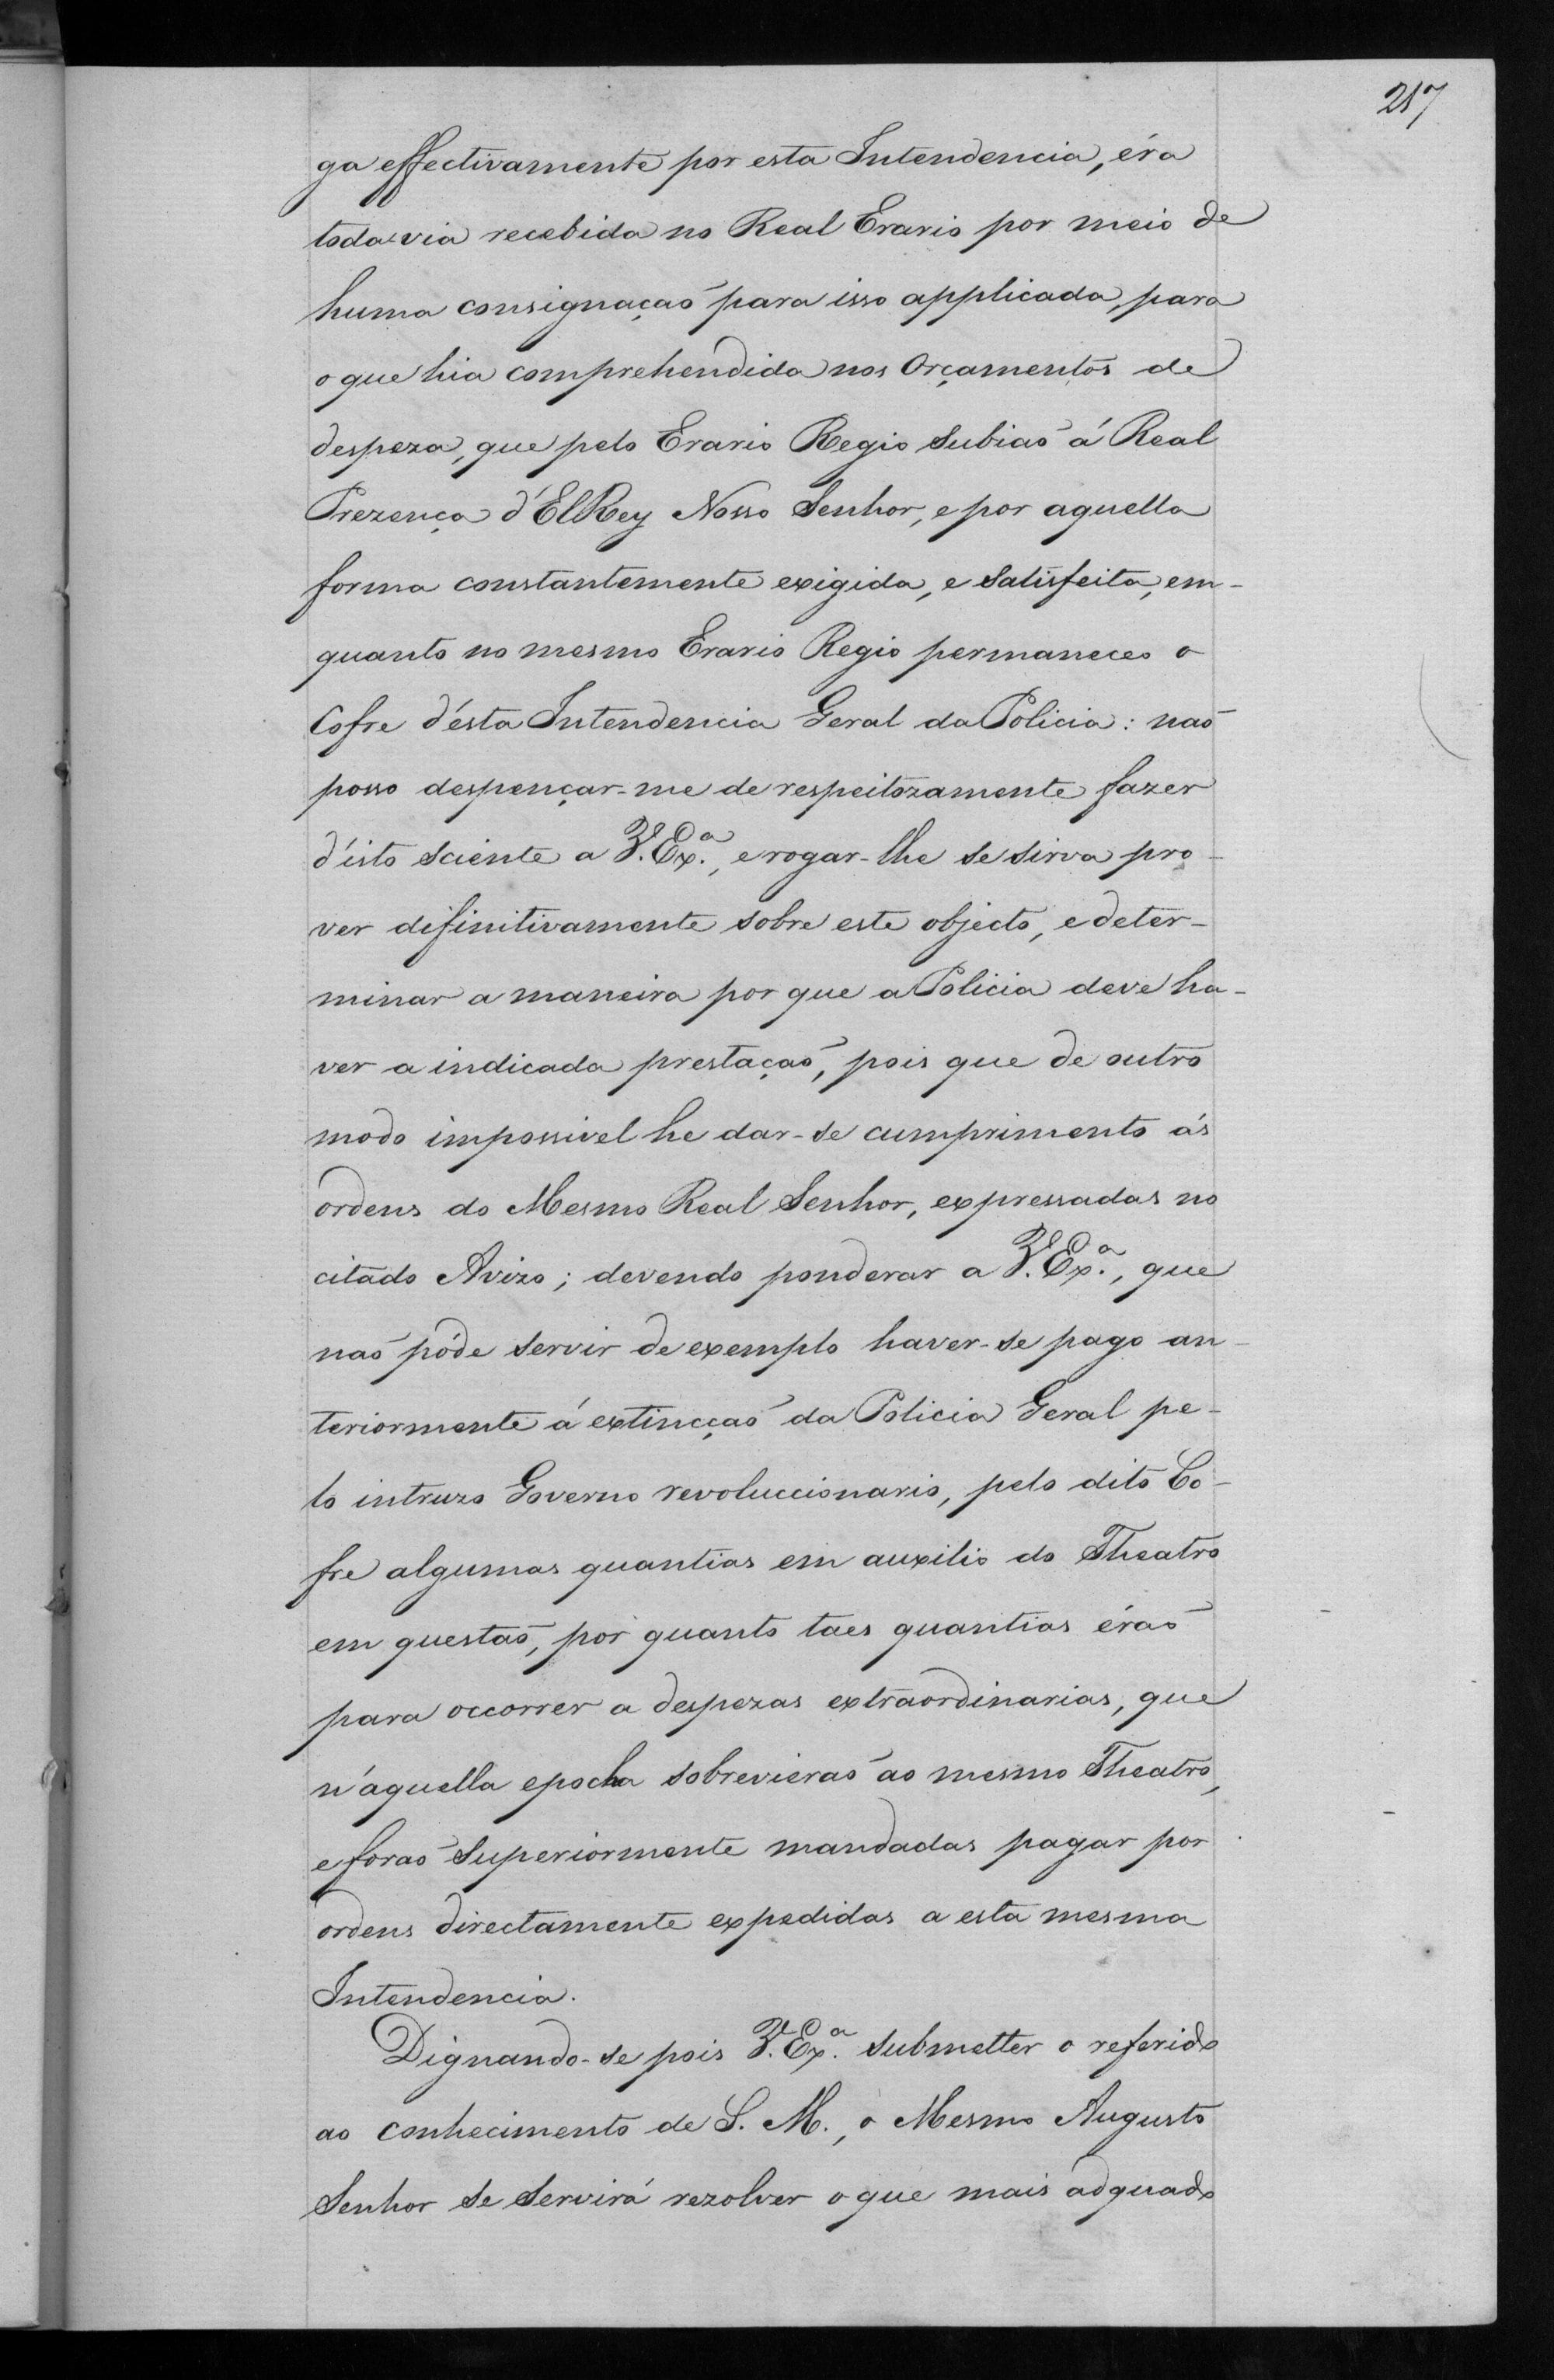 217
ga effectivamente por esta Intendencia, éra
todavia recebida no Real Erario por meio de
huma consignaçaõ para isso applicada, para
o que hia comprehendida nos Orçamentos de
despeza, que pelo Erario Regio subiaõ á Real
Prezença d'ElRey Nosso Senhor, e por aquella
forma constantemente exigida, e satisfeita, em-
quanto no mesmo Erario Regio permaneceo o
Cofre d'ésta Intendencia Geral da Policia: naõ
posso despençar-me de respeitozamente fazer
d'isto sciente a V. Ex.ª, e rogar-lhe se sirva pro-
ver difinitivamente sobre este objecto, e deter-
minar a maneira por que a Policia deve ha-
ver a indicada prestaçaõ, pois que de outro
modo impossivel he dar-se cumprimento ás
ordens do Mesmo Real Senhor, expressadas no
citado Avizo; devendo ponderar a V. Ex.ª, que
naõ póde servir de exemplo haver-se pago an-
teriormente á extincçaõ da Policia Geral pe-
lo intruzo Governo revoluccionario, pelo dito Co-
fre algumas quantias em auxilio do Theatro
em questaõ, por quanto taes quantias éraõ
para occorrer a despezas extraordinarias, que
n'aquella epocha sobrevieraõ ao mesmo Theatro,
e foraõ superiormente mandadas pagar por
ordens directamente expedidas a esta mesma
Intendencia.
Dignando-se pois V. Ex.ª submetter o referido
ao conhecimento de S. M., o Mesmo Augusto
Senhor se servirá rezolver o que mais adquado